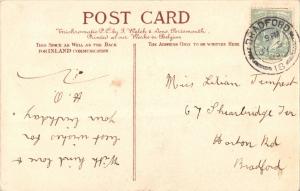 POST CARD
"Trichromatic" P.C. by J. Welch & Sons, Portsmouth.
Printed at our Works in Belgium
THIS SPACE AS WELL AS THE BACK
FOR INLAND COMMUNICATION
THE ADDRESS ONLY TO BE WRITTEN HERE
BRADFORD
Miss Lilian Tempest
67 Shearbridge Ter
Horton Rd
Bradford
With kind love &
best wishes for
your birthday